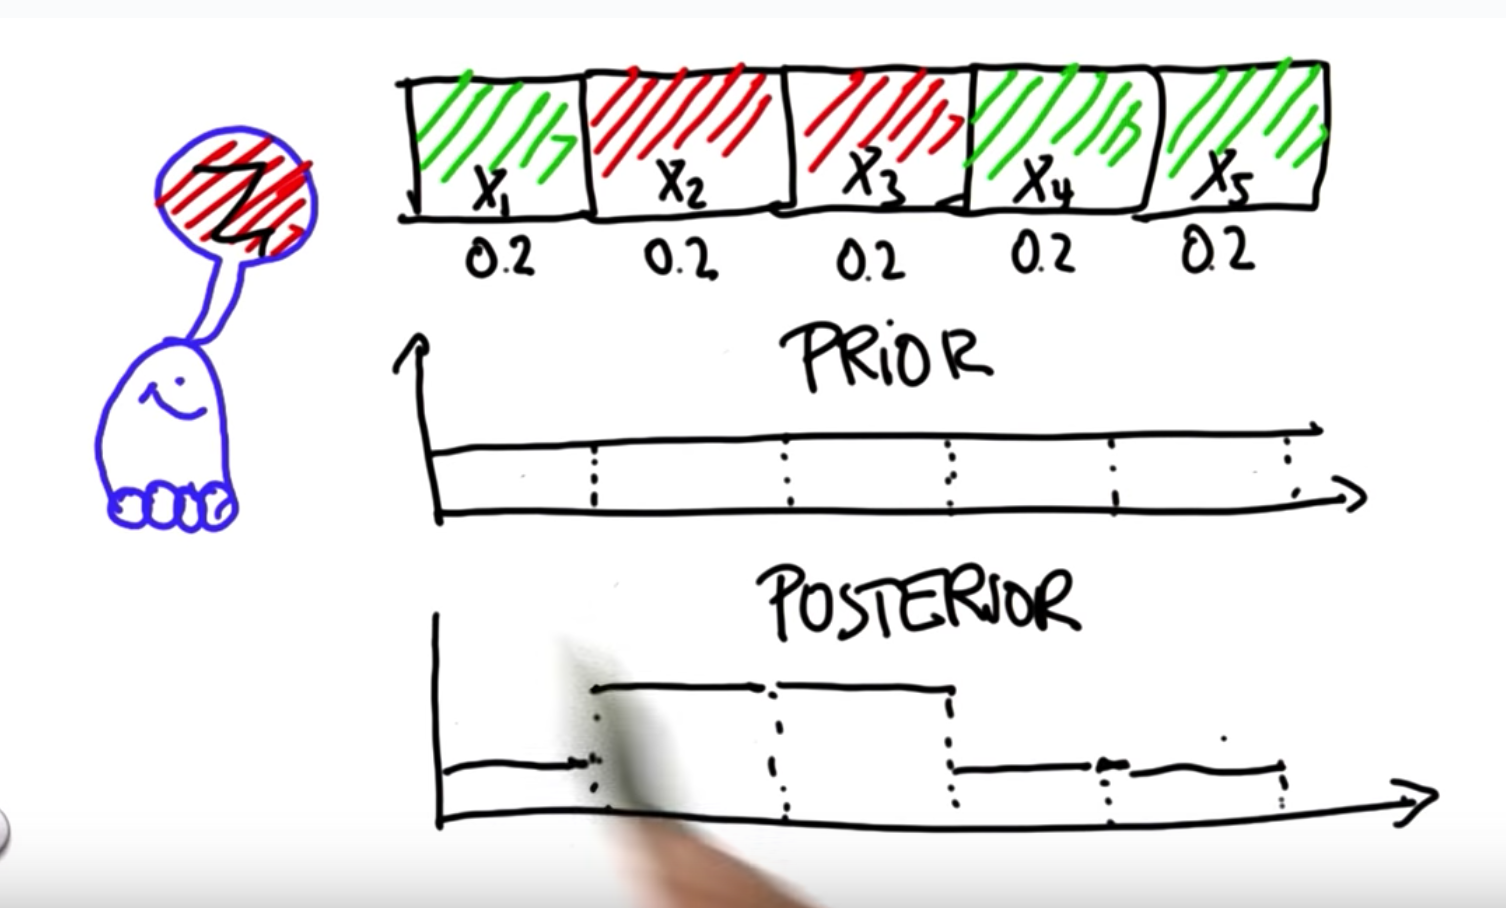 Z
X1 X2 X3 X4 X5
0.2 0.2 0.2 0.2 0.2
PRiOR
POSTERIOR